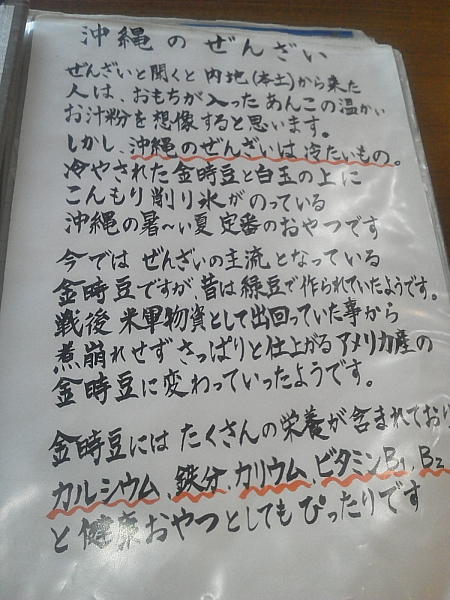 沖縄のぜんざい
ぜんざいと聞くと内地(本土)から来た
人は、おもちが入ったあんこの温かい
お汁粉を想像すると思います。
しかし、沖縄のぜんざいは冷たいもの。
冷やされた金時豆と白玉の上に
こんもり削り氷がのっている
沖縄の暑〜い夏定番のおやつです
今ではぜんざいの主流となっている
金時豆ですが、昔は緑豆で作られていたようです。
戦後米軍物資として出回っていた事から
煮崩れせずさっぱりと仕上がるアメリカ産の
金時豆に変わっていったようです。
金時豆にはたくさんの栄養が含まれており
カルシウム、鉄分、カリウム、ビタミンB1、B2
と健康おやつとしてもぴったりです